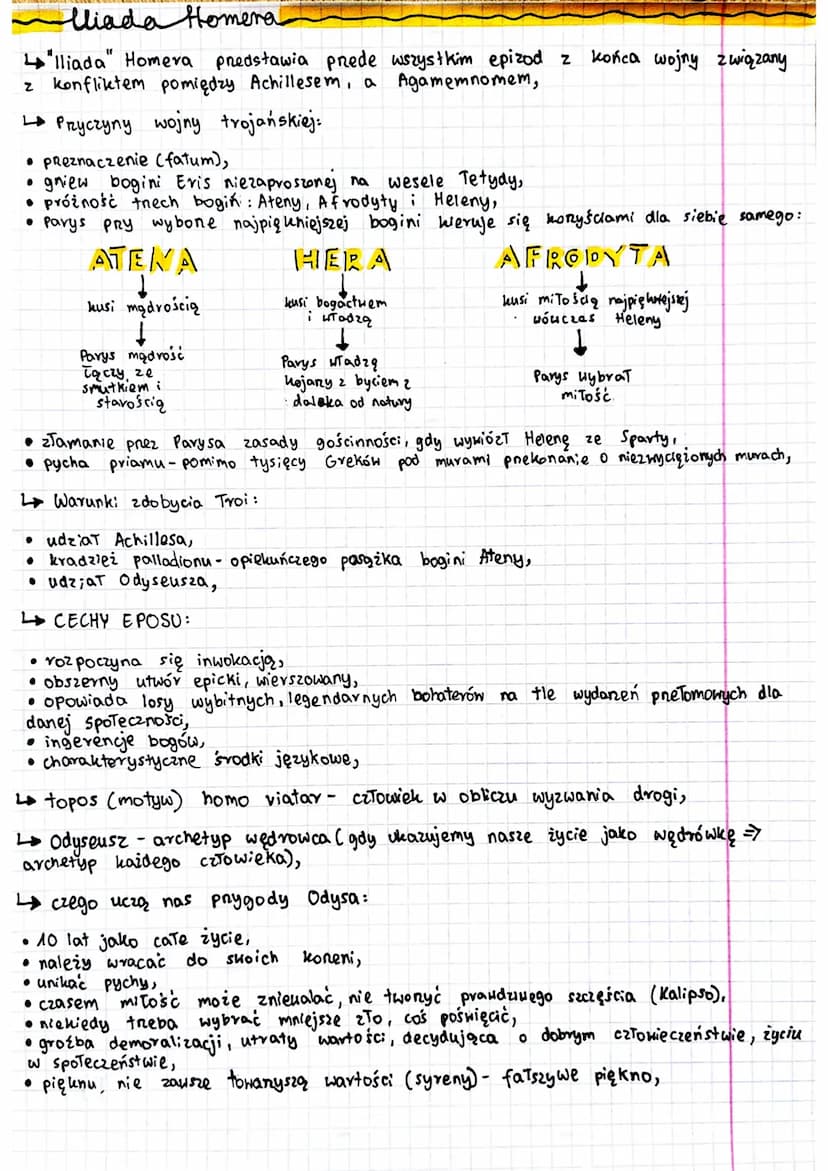 Iliada Homera
↳ "Iliada" Homera przedstawia przede wszystkim epizod z końca wojny związany
z konfliktem pomiędzy Achillesem, a Agamemnomem,
↳ Przyczyny wojny trojańskiej:
• przeznaczenie (fatum),
• gniew bogini Eris niezaproszonej na wesele Tetydy,
• próżność trzech bogiń: Ateny, Afrodyty i Heleny,
• Parys przy wyborze najpiękniejszej bogini kieruje się korzyściami dla siebie samego:
ATENA HERA AFRODYTA
kusi mądrością
Parys mądrość
łączy ze
smutkiem i
starością
kusi bogactwem
i władzą
Parys władzę
kojarzy z byciem z
daleka od natury
kusi miłością najpiękniejszej
wówczas Heleny
Parys wybrał
miłość
• złamanie przez Parysa zasady gościnności, gdy wywiózł Helenę ze Sparty,
• pycha priamu - pomimo tysięcy Greków pod murami przekonanie o niezwyciężonych murach,
↳ Warunki zdobycia Troi:
• udział Achillesa,
• kradzież palladionu - opiekuńczego posążka bogini Ateny,
• udział Odyseusza,
↳ CECHY EPOSU:
• rozpoczyna się inwokacją,
• obszerny utwór epicki, wierszowany,
• opowiada losy wybitnych, legendarnych bohaterów na tle wydarzeń przełomowych dla
danej społeczności,
• ingerencje bogów,
• charakterystyczne środki językowe,
↳ topos (motyw) homo viatar - człowiek w obliczu wyzwania drogi,
↳ Odyseusz - archetyp wędrowca (gdy ukazujemy nasze życie jako wędrówkę ⇒
archetyp każdego człowieka),
↳ czego uczą nas przygody Odysa:
• 10 lat jako całe życie,
• należy wracać do swoich korzeni,
• unikać pychy,
• czasem miłość może zniewalać, nie tworzyć prawdziwego szczęścia (Kalipso),
• niekiedy trzeba wybrać mniejsze zło, coś poświęcić,
• groźba demoralizacji, utraty wartości, decydująca o dobrym człowieczeństwie, życiu
w społeczeństwie,
• pięknu nie zawsze towarzyszą wartości (syreny) - fałszywe piękno,